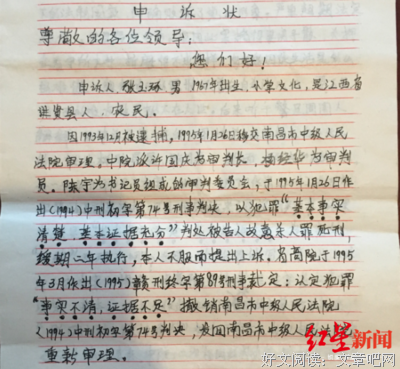 申诉状
尊敬的各位领导：
您们好！
申诉人 张玉环 男 1967年出生，小学文化，是江西省
进贤县人，农民。
因1993年12月被逮捕，1995年1月26日移交南昌市中级人民
法院审理，中院派许国庆为审判长，为审判
员。陈宁为书记员组成的审判委员会，于1995年1月26日作
出(1994)中刑初字第74号刑事判决，以犯罪“基本事实
清楚，基本证据充分”判处被告人故意杀人罪死刑，
缓期二年执行，本人不服而提出上诉。省高院于1995
年3月作出(1995)赣刑终字第89号刑事裁定：认定犯罪
“事实不清，证据不足”撤销南昌市中级人民法院
(1994)中刑初字第74号判决，发回南昌市中级人民法
重新审理。
红星新闻
好文阅读：文章吧网